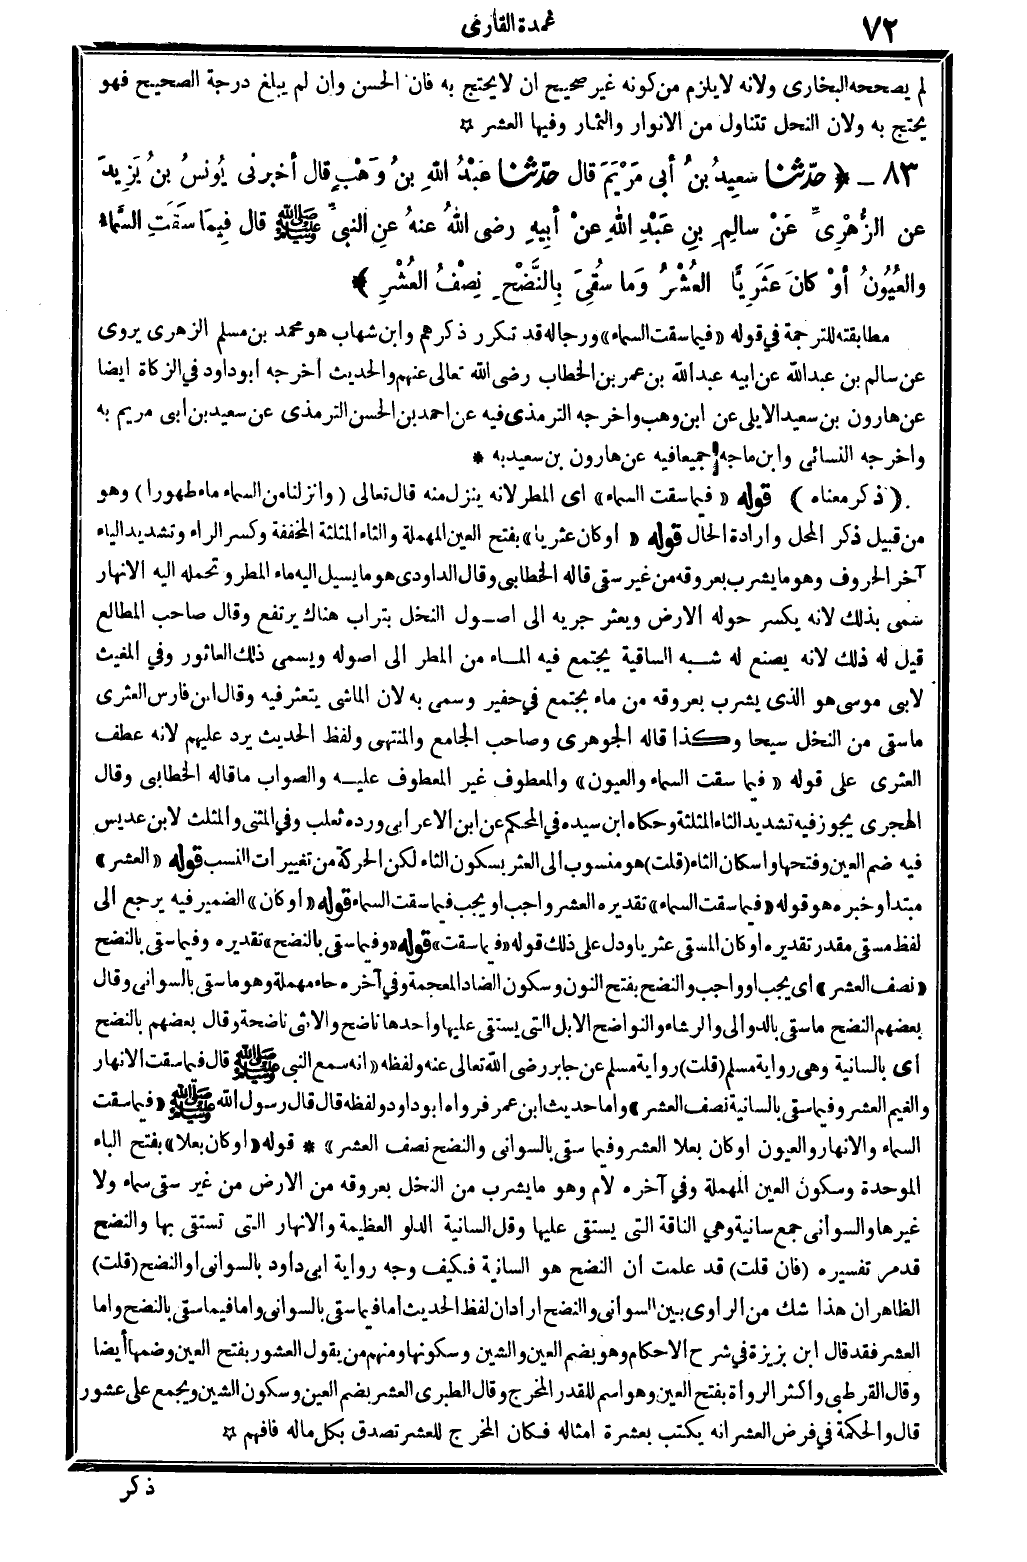 ٧٢
عمدة القارئ
لم يصححه البخارى ولانه لا يلزم من كونه غير صحيح ان لا يحتج به فان الحسن وان لم يبلغ درجة الصحيح فهو
يحتج به ولان النحل تتناول من الانوار والثمار وفيها العشر ☆
٨٣ ـ ﴿ حدّثنا سَعِيدُ بنُ أبى مَرْيَمَ قال حدّثنا عَبْدُ اللهِ بنُ وَهْبٍ قال أخبرنى يُونُسُ بنُ يَزِيدَ
عن الزُّهْرِىِّ عَنْ سالِمِ بنِ عَبْدِ اللهِ عنْ أبيهِ رضى اللهُ عنهُ عنِ النبىِّ ﷺ قال فِيمَا سَقَتِ السَّماءُ
والعُيُونُ أوْ كانَ عَثَرِيًّا العُشْرُ وَما سُقِىَ بِالنَّضْحِ نِصْفُ العُشْرِ ﴾
مطابقته للترجمة فى قوله «فيما سقت السماء» ورجاله قد تكرر ذكرهم وابن شهاب هو محمد بن مسلم الزهرى يروى
عن سالم بن عبدالله عن ابيه عبدالله بن عمر بن الخطاب رضى الله تعالى عنهم والحديث أخرجه أبو داود فى الزكاة ايضا
عن هارون بن سعيد الايلى عن ابن وهب واخرجه الترمذى فيه عن احمد بن الحسن الترمذى عن سعيد بن ابى مريم به
واخرجه النسائى وابن ماجه جميعا فيه عن هارون بن سعيد به *
(ذكر معناه) قوله «فيما سقت السماء» اى المطر لانه ينزل منه قال تعالى (وانزلنا من السماء ماء طهورا) وهو
من قبيل ذكر المحل وارادة الحال قوله «اوكان عثريا» بفتح العين المهملة والثاء المثلثة المخففة وكسر الراء وتشديد الياء
آخر الحروف وهو ما يشرب بعروقه من غير سقى قاله الخطابى وقال الداودى هو ما يسيل اليه ماء المطر وتحمله اليه الانهار
سمى بذلك لانه يكسر حوله الارض ويعثر جريه الى اصـول النخل بتراب هناك يرتفع وقال صاحب المطالع
قيل له ذلك لانه يصنع له شبه الساقية يجتمع فيه المـاء من المطر الى اصوله ويسمى ذلك العاثور وفى المغيث
لابى موسى هو الذى يشرب بعروقه من ماء يجتمع فى حفير وسمى به لان الماشى يتعثر فيه وقال ابن فارس العثرى
ماسقى من النخل سيحا وكـذا قاله الجوهرى وصاحب الجامع والمنتهى ولفظ الحديث يرد عليهم لانه عطف
العثرى على قوله «فيما سقت السماء والعيون» والمعطوف غير المعطوف عليـه والصواب ماقاله الخطابى وقال
الهجرى يجوز فيه تشديد الثاء المثلثة وحكاه ابن سيده فى المحكم عن ابن الاعرابى ورده ثعلب وفى المثنى والمثلث لابن عديس
فيه ضم العين وفتحها واسكان الثاء (قلت) هو منسوب الى العثر بسكون الثاء لكن الحركة من تغييرات النسب قوله «العشر»
مبتدأ وخبره هو قوله «فيما سقت السماء» تقديره العشر واجب او يجب فيما سقت السماء قوله «او كان» الضمير فيه يرجع الى
لفظ مسقى مقدر تقديره او كان المسقى عثريا ودل على ذلك قوله «فيما سقت» قوله «وفيما سقى بالنضح» تقديره وفيما سقى بالنضح
«نصف العشر» اى يجب او واجب والنضح بفتح النون وسكون الضاد المعجمة وفى آخره حاء مهملة وهو ما سقى بالسوانى وقال
بعضهم النضح ماسقى بالدوالى والرشاء والنواضح الابل التى يستقى عليها واحدها ناضح والانثى ناضحة وقال بعضهم بالنضح
أى بالسانية وهى رواية مسلم (قلت) رواية مسلم عن جابر رضى الله تعالى عنه ولفظه «انه سمع النبى ﷺ قال فيما سقت الانهار
والغيم العشر وفيما سقى بالسانية نصف العشر» واما حديث ابن عمر فرواه ابو داود ولفظه قال قال رسول الله ﷺ «فيما سقت
السماء والانهار والعيون اوكان بعلا العشر وفيما سقى بالسوانى والنضح نصف العشر» * قوله «اوكان بعلا» بفتح الباء
الموحدة وسكون العين المهملة وفى آخره لام وهو ما يشرب من النخل بعروقه من الارض من غير سقى سماء ولا
غيرها والسوانى جمع سانية وهى الناقة التى يستقى عليها وقيل السانية الدلو العظيمة والانهار التى تستقى بها والنضح
قد مر تفسيره (فان قلت) قد علمت ان النضح هو السانية فكيف وجه رواية ابى داود بالسوانى أو النضح (قلت)
الظاهر ان هذا شك من الراوى بين السوانى والنضح اراد ان لفظ الحديث اما فيما سقى بالسوانى واما فيما سقى بالنضح واما
العشر فقد قال ابن بزيزة فى شرح الاحكام وهو بضم العين والشين وسكونها ومنهم من يقول العشور بفتح العين وضمها أيضا
وقال القرطبى وأكثر الرواة بفتح العين وهو اسم للقدر المخرج وقال الطبرى العشر بضم العين وسكون الشين ويجمع على عشور
قال والحكمة فى فرض العشر انه يكتب بعشرة امثاله فكان المخرج للعشر تصدق بكل ماله فافهم ☆
ذكر